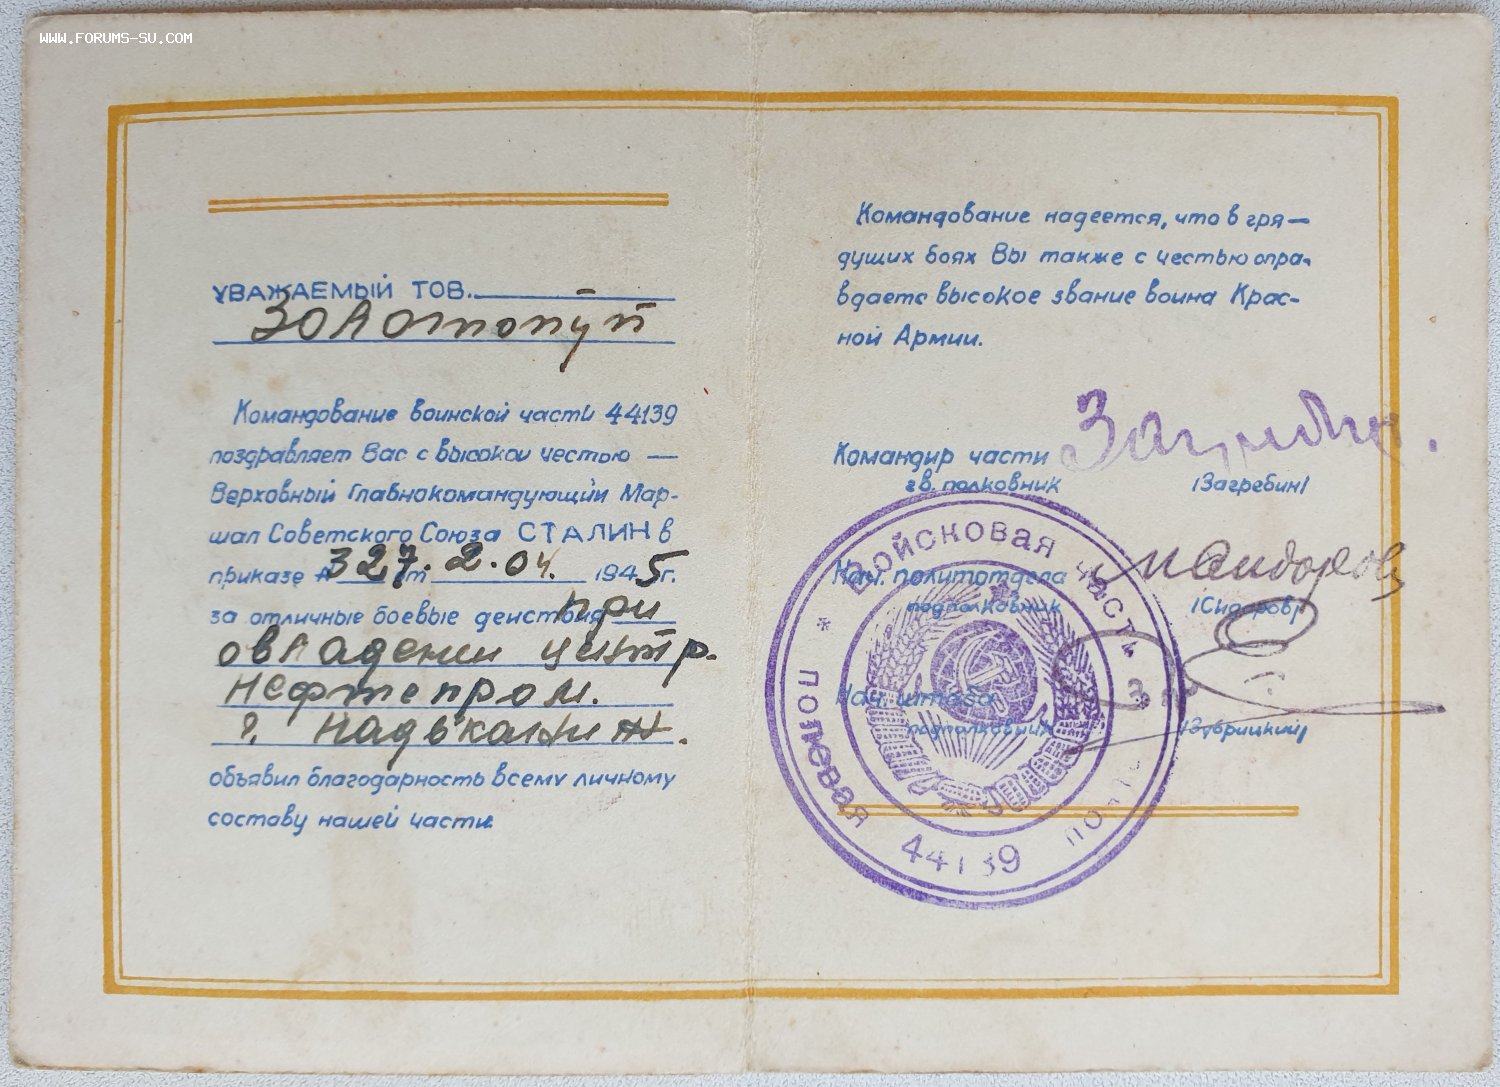 WWW.FORUMS-SU.COM
УВАЖАЕМЫЙ ТОВ.
Золотопуп
Командование воинской части 44139
поздравляет Вас с высокой честью —
Верховный Главнокомандующий Мар-
шал Советского Союза СТАЛИН в
приказе № 327 от 2.04. 1945 г.
за отличные боевые действия при
овладении центр.
нефтепром.
г. Надьканиж.
объявил благодарность всему личному
составу нашей части.
Командование надеется, что в гря—
дущих боях Вы также с честью опра-
вдаете высокое звание воина Крас-
ной Армии.
Командир части Загребин.
гв. полковник /Загребин/
Нач. политотдела Сидоров
подполковник /Сидоров/
Нач. штаба
подполковник /Забрицкий/
Войсковая часть * полевая почта * 44139